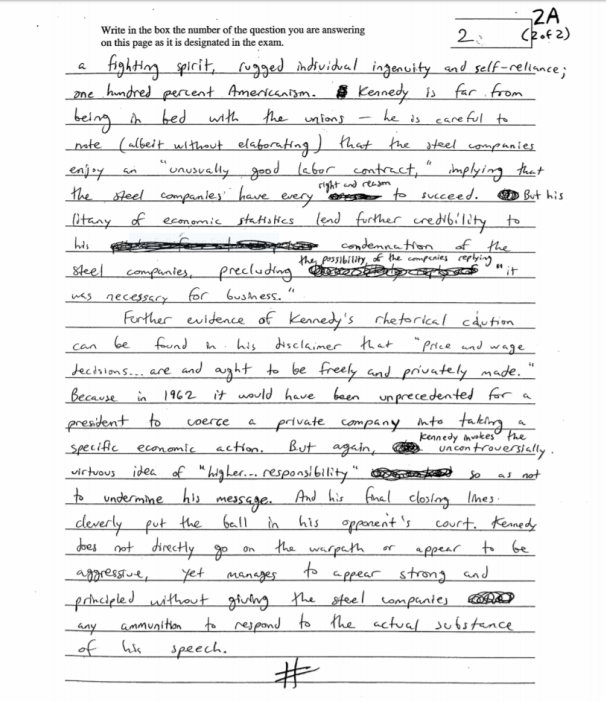 Write in the box the number of the question you are answering
on this page as it is designated in the exam.
2
2A
(2 of 2)
a fighting spirit, rugged individual ingenuity and self-reliance;
one hundred percent Americanism. Kennedy is far from
being in bed with the unions – he is careful to
note (albeit without elaborating) that the steel companies
enjoy an "unusually good labor contract," implying that
the steel companies have every right and reason to succeed. But his
litany of economic statistics lend further credibility to
his condemnation of the
steel companies, precluding the possibility of the companies replying "it
was necessary for business."
Further evidence of Kennedy's rhetorical caution
can be found in his disclaimer that "price and wage
decisions... are and ought to be freely and privately made."
Because in 1962 it would have been unprecedented for a
president to coerce a private company into taking a
specific economic action. But again, Kennedy invokes the uncontroversially
virtuous idea of "higher... responsibility" so as not
to undermine his message. And his final closing lines
cleverly put the ball in his opponent's court. Kennedy
does not directly go on the warpath or appear to be
aggressive, yet manages to appear strong and
principled without giving the steel companies
any ammunition to respond to the actual substance
of his speech.
#